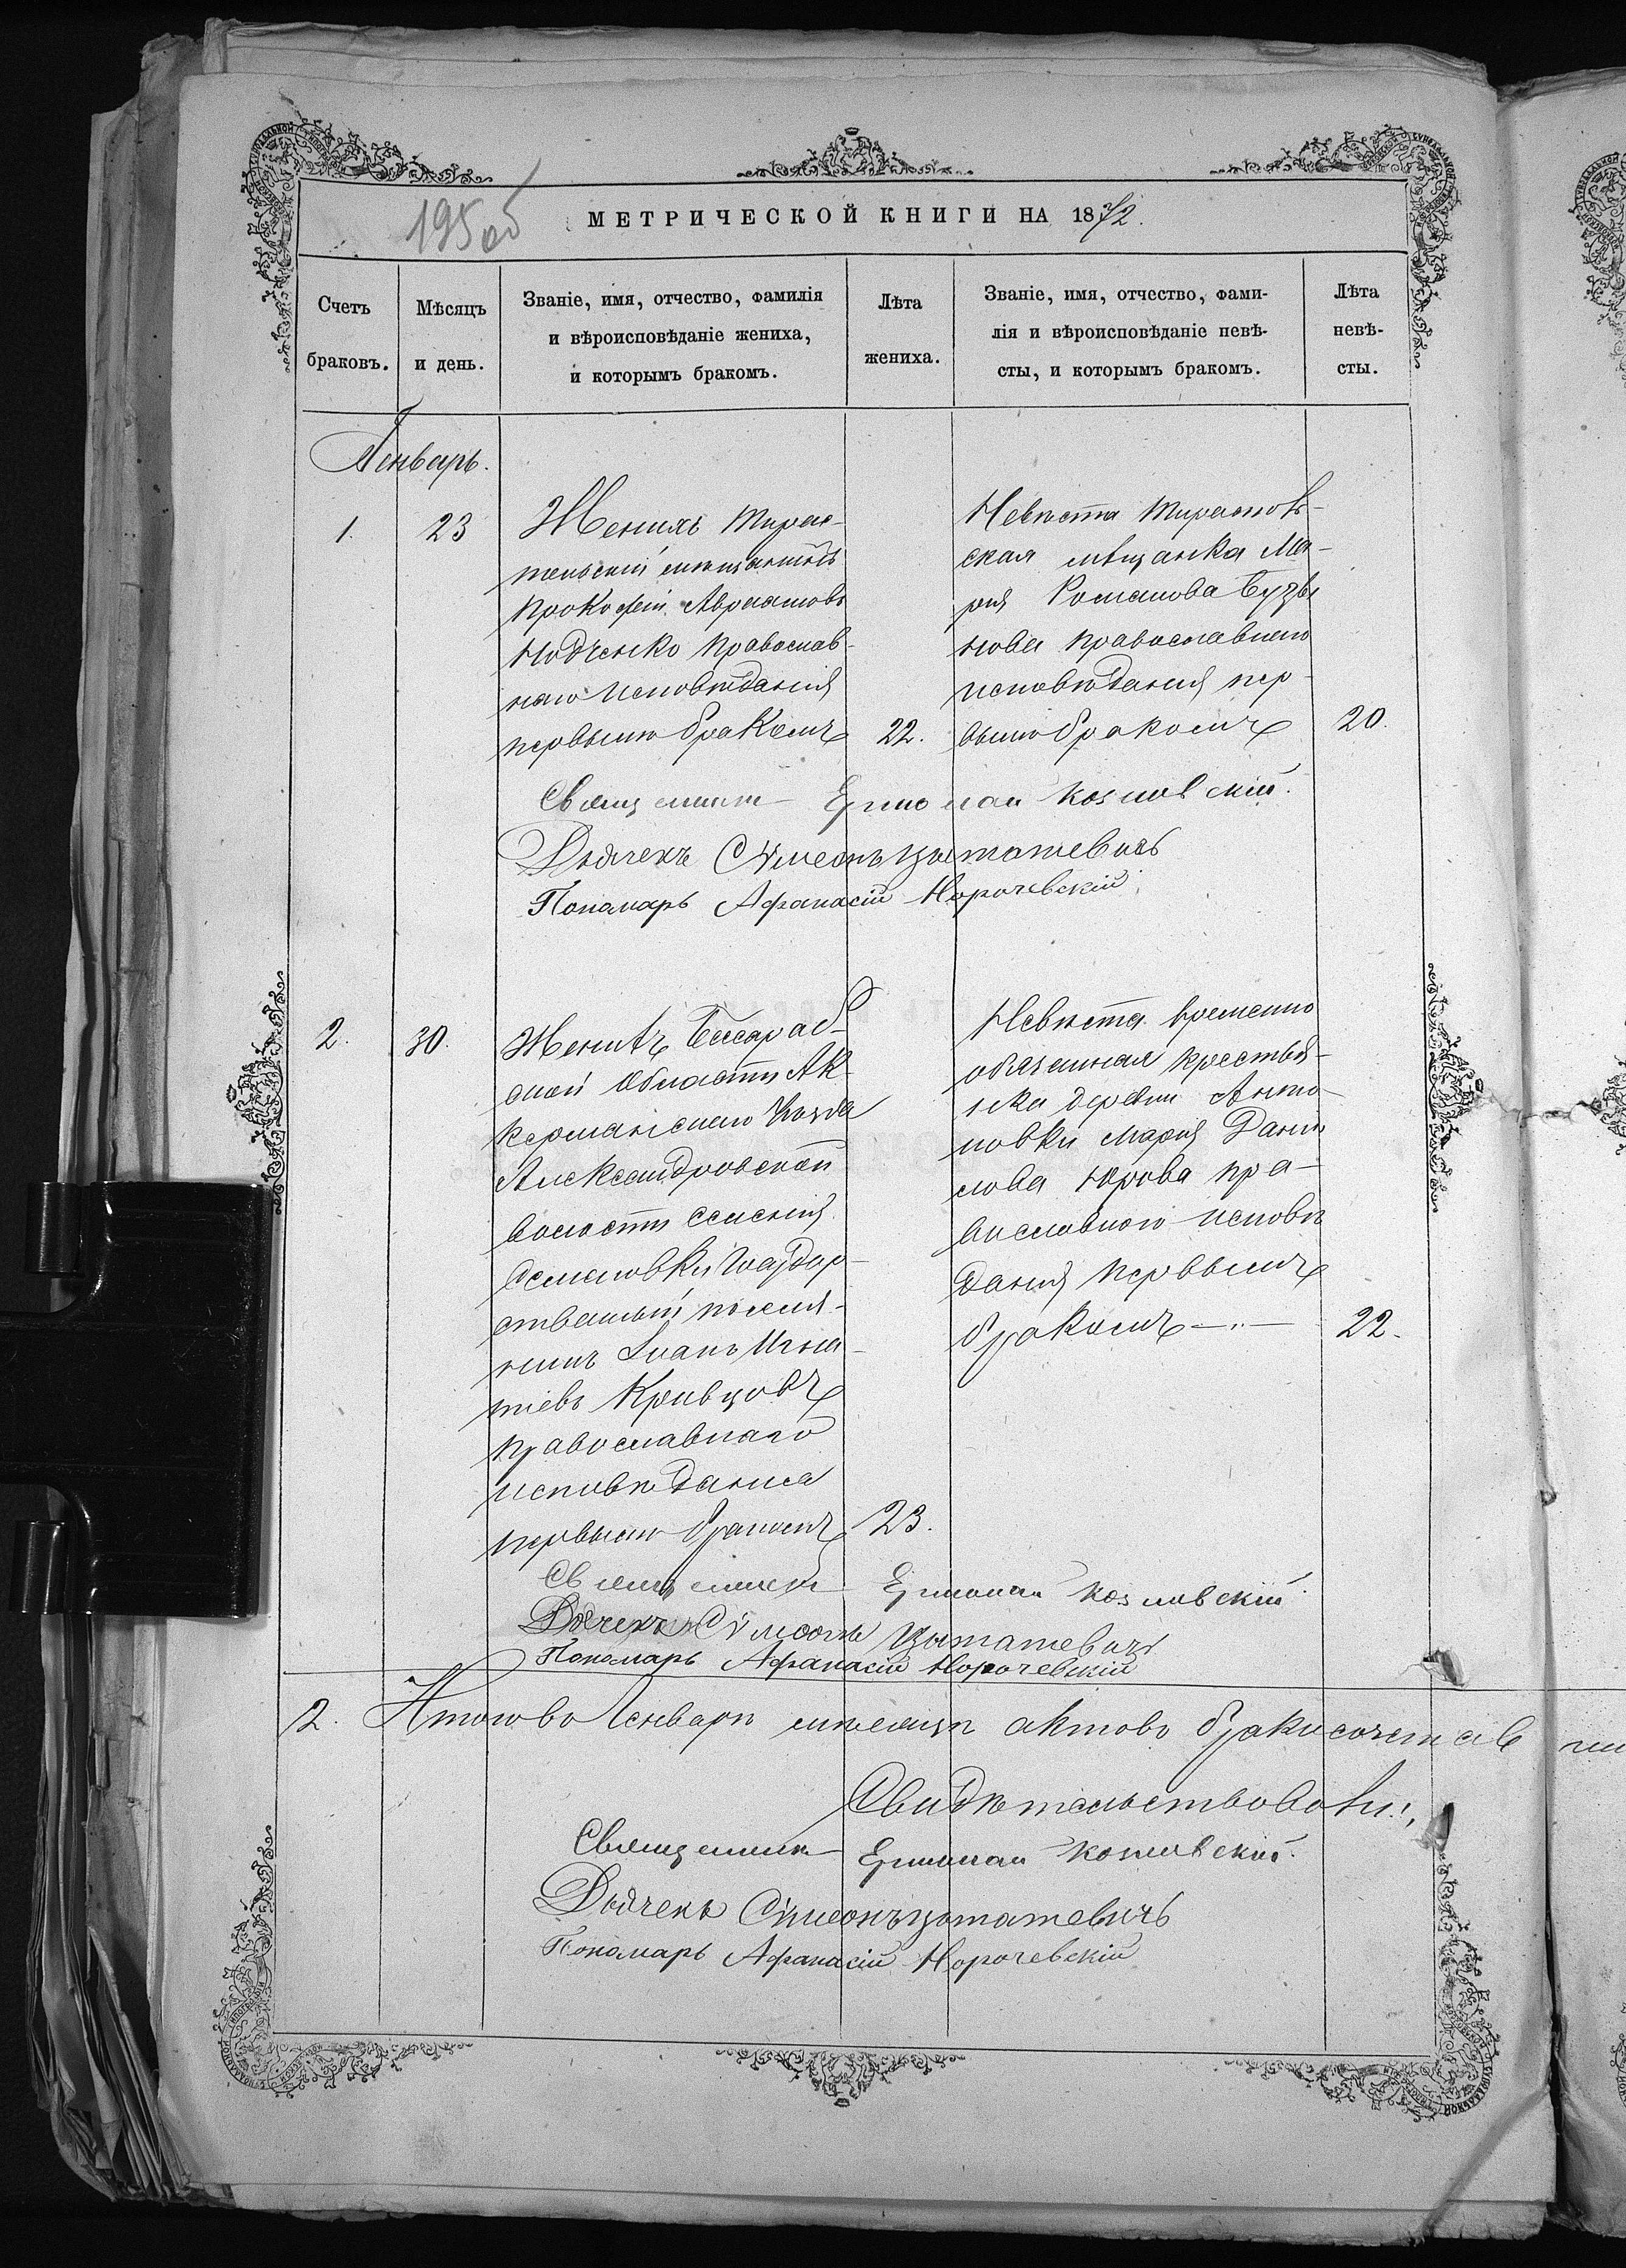 195 об
МЕТРИЧЕСКОЙ КНИГИ НА 1872.
Счетъ браковъ.
Мѣсяцъ и день.
Званіе, имя, отчество, фамилія
и вѣроисповѣданіе жениха,
и которымъ бракомъ.
Лѣта жениха.
Званіе, имя, отчество, фами-
лія и вѣроисповѣданіе невѣ-
сты, и которымъ бракомъ.
Лѣта невѣ-
сты.
Январь.
1.
23
Женихъ Тирас-
польскій мещанинъ
Прокофій
православ-
наго исповѣданія
первымъ бракомъ
22.
Невѣста Тирасполь-
ская мѣщанка Ма-
рія Романова
православнаго
исповѣданія пер-
вымъ бракомъ
20.
Священникъ Ермолай Козловскій.
Дьячекъ Сѵмеонъ
Пономарь Афанасій Норочевскій.
2.
30.
Женихъ Бессараб-
ской Области Ак-
керманскаго Уезда
Александровской
волости селенія
поселя-
нинъ Іванъ Игна-
тіевъ Кривцовъ
православнаго
исповѣданія
первымъ бракомъ
23.
Невѣста временно
обязанная крестьян-
ка деревни Анто-
новки Марія Дани-
лова Юрова пра-
вославного исповѣ
данія первымъ
бракомъ —„—
22.
Священникъ Ермолай Козловскій.
Дьячекъ Сѵмеонъ
Пономарь Афанасій Норочевскій
2. Итого во Генварѣ месяцѣ актовъ бракосочетав
Свидѣтельствовали:
Священникъ Ермолай Козловскій.
Дьячекъ Сѵмеонъ
Пономарь Афанасій Норочевскій